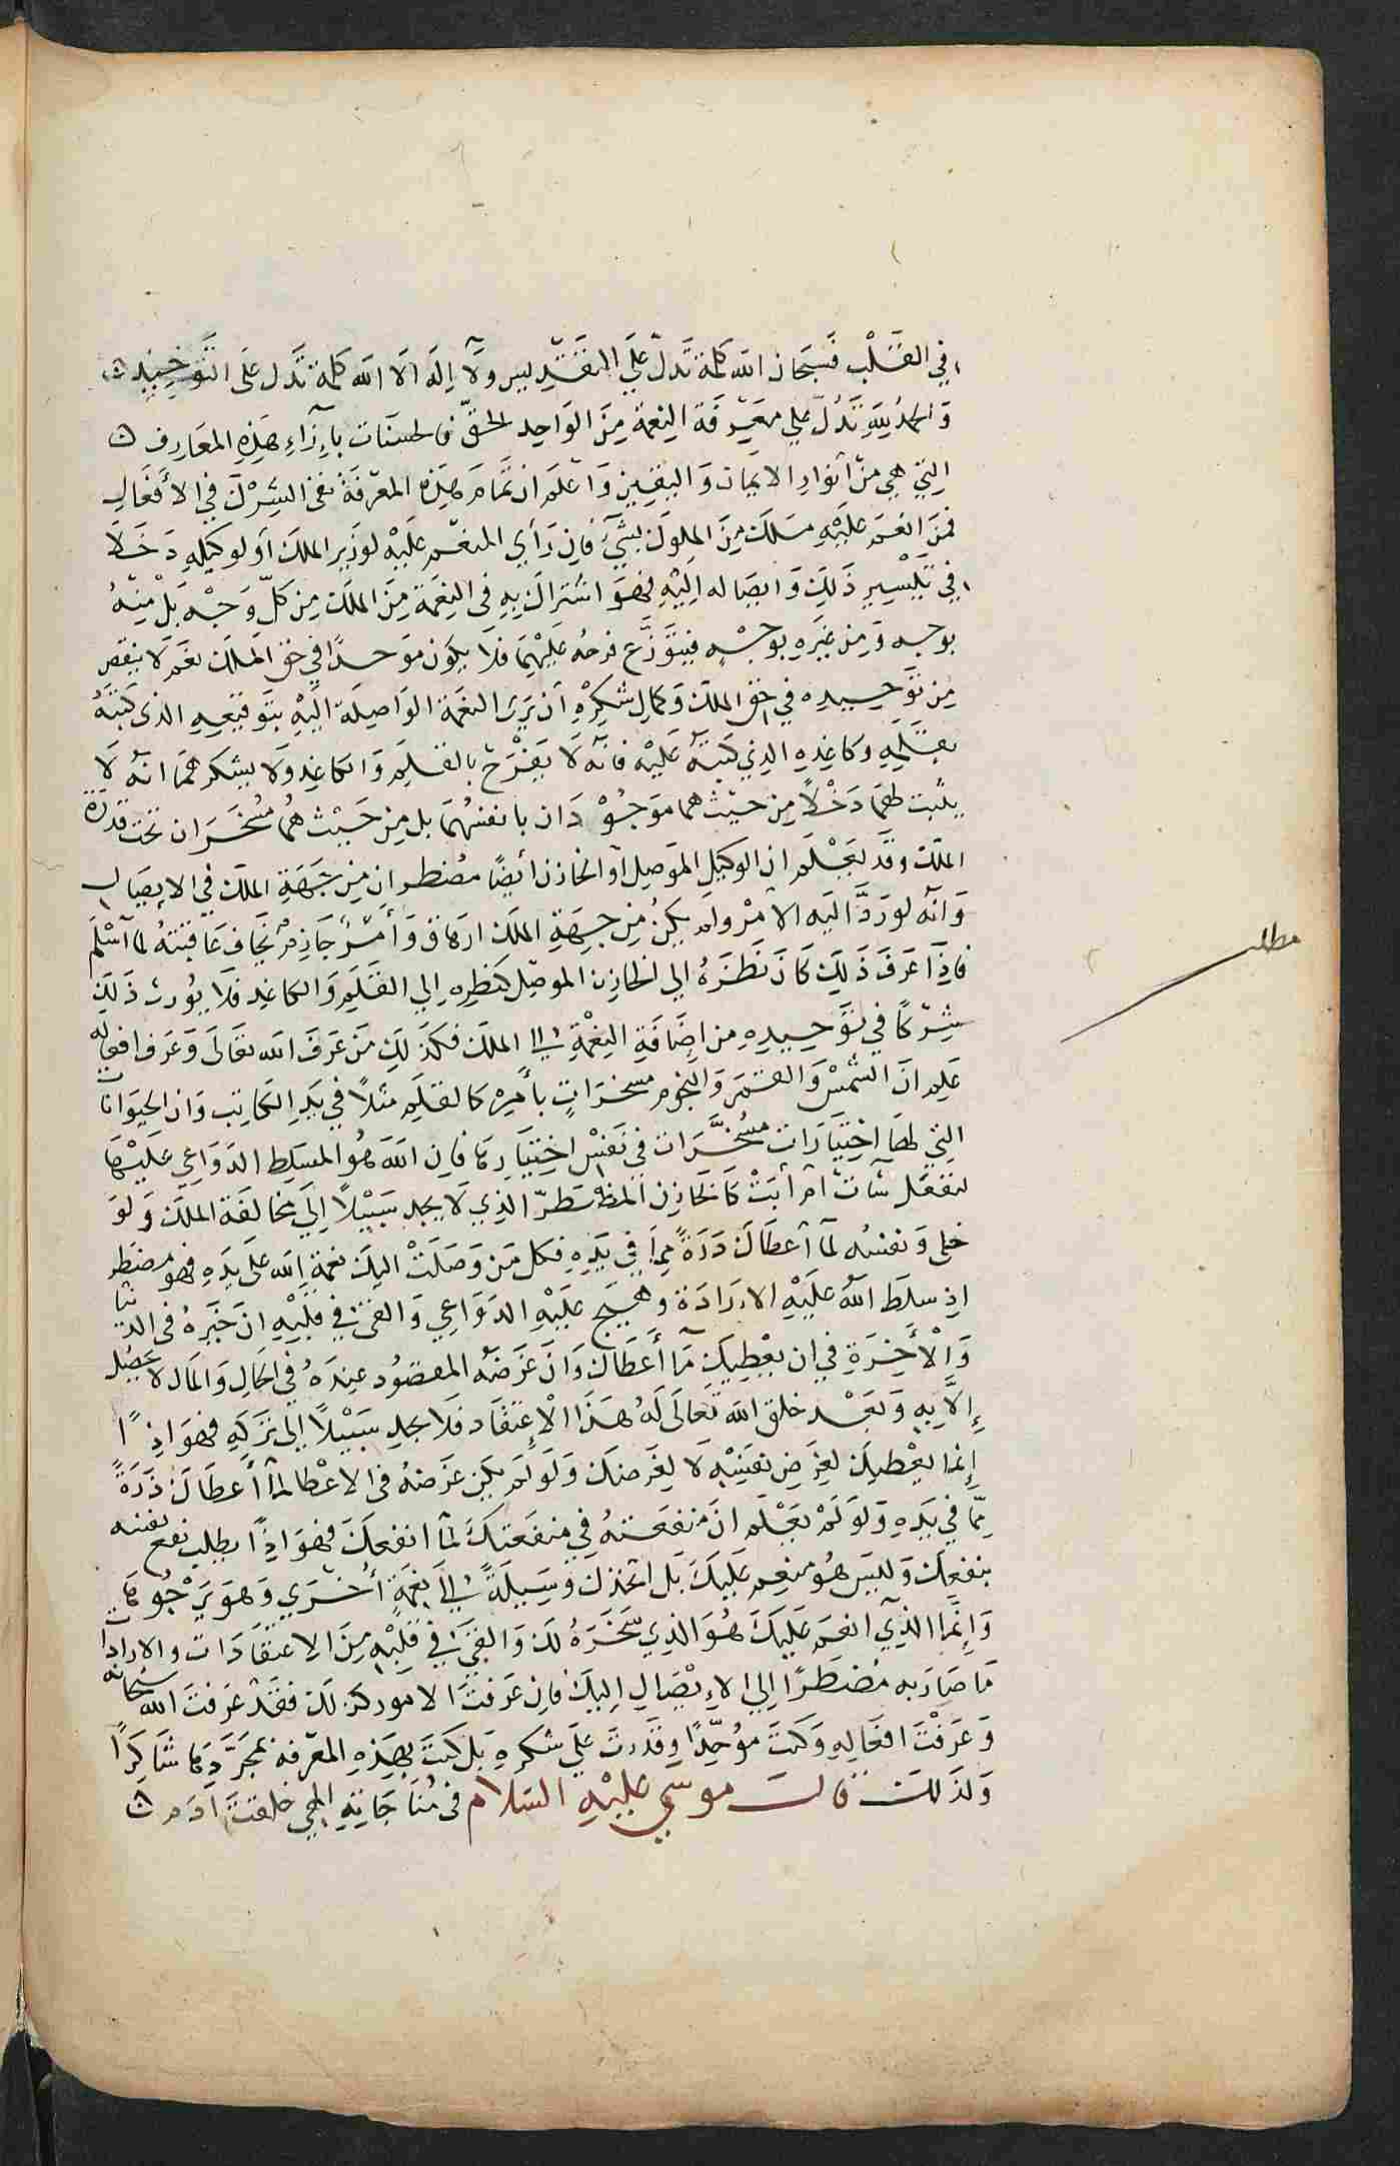 في القلب فسبحان الله كلمة تدل على التقديس ولا إله الا الله كلمة تدل على التوحيد
والحمد لله تدل علي معرفة النعمة من الواحد الحق فالحسنات بإزاء هذه المعارف
التي هي من أنوار الايمان واليقين واعلم ان تمام هذه المعرفة نفي الشرك في الأفعال
فمن انعم عليه ملك من الملوك بشيء فان رأي المنعم عليه لوزير الملك أو لوكيله دخلا
في تيسير ذلك وايصاله إليه فهو اشتراك به في النعمة من الملك من كل وجه بل منه
بوجه ومن غيره بوجه فيتوزع فرحه عليهما فلا يكون موحدا في حق الملك نعم لا ينقص
من توحيده في حق الملك وكمال شكره أن يرى النعمة الواصلة اليه بتوقيعه الذى كتبه
بقلمه وكاغذه الذي كتبه عليه فانه لا يفرح بالقلم والكاغذ ولا يشكرهما انه لا
يثبت لهما دخلا من حيث هما موجودان بانفسهما بل من حيث هما مسخران تحت قدرة
الملك وقد يعلم ان الوكيل الموصل أو الخازن أيضا مضطران من جهة الملك في الايصال
وانه لو رد اليه الامر ولم يكن من جهة الملك ارهاق وأمر جازم يخاف عاقبته لما أسلم
فاذا عرف ذلك كان نظره إلي الخازن الموصل كنظره إلي القلم والكاغذ فلا يورث ذلك
شركا في توحيده من اضافة النعمة إلى الملك فكذلك من عرف الله تعالى وعرف افعاله
علم ان الشمس والقمر والنجوم مسخرات بأمره كالقلم مثلا في يد الكاتب وان الحيوانات
التي لها اختيارات مسخرات في نفس اختيارها فان الله هو المسلط الدواعي عليها
لتفعل شأت أم أبت كالخازن المضطر الذي لا يجد سبيلا إلى مخالفة الملك ولو
خلى ونفسه لما أعطاك ذرة مما في يده فكل من وصلت اليك نعمة الله على يده فهو مضطر
اذ سلط الله عليه الارادة وهيج عليه الدواعي والقى في قلبه ان خيره فى الدنيا
والأخرة في ان يعطيك ما أعطاك وان غرضه المقصود عنده في الحال والمال لا يحصل
إلا به وبعد خلق الله تعالى له هذا الإعتقاد فلا يجد سبيلا إلى تركه فهو اذا
إنما يعطيك لغرض نفسه لا لغرضك ولو لم يكن غرضه فى الاعطا لما أعطاك ذرة
مما في يده ولو لم يعلم ان منفعته في منفعتك لما انفعك فهو اذا يطلب نفع نفسه
بنفعك وليس هو منعم عليك بل اتخذك وسيلة إلى نعمة أخري وهو يرجوها
وإنما الذي انعم عليك هو الذي سخره لك والقى في قلبه من الاعتقادات والارادات
ما صار به مضطرا إلي الايصال اليك فان عرفت الامور كذلك فقد عرفت الله سبحانه
وعرفت افعاله وكنت موحدا وقدرت على شكره بل كنت بهذه المعرفة بمجردها شاكرا
ولذلك قال موسي عليه السلام فى مناجاته الهي خلقت ادم
مطلب